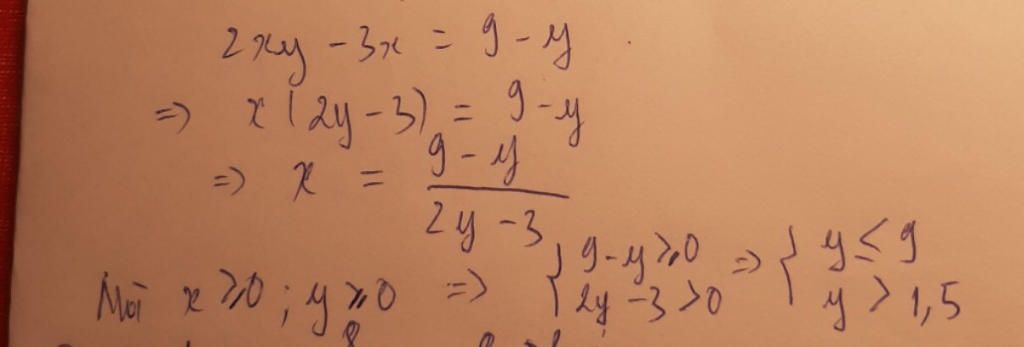 2xy - 3x = 9 - y
=> x(2y - 3) = 9 - y
=> x = \frac{9 - y}{2y - 3}
Mà x ≥ 0 ; y ≥ 0 => { 9 - y ≥ 0 ; 2y - 3 > 0 => { y ≤ 9 ; y > 1,5